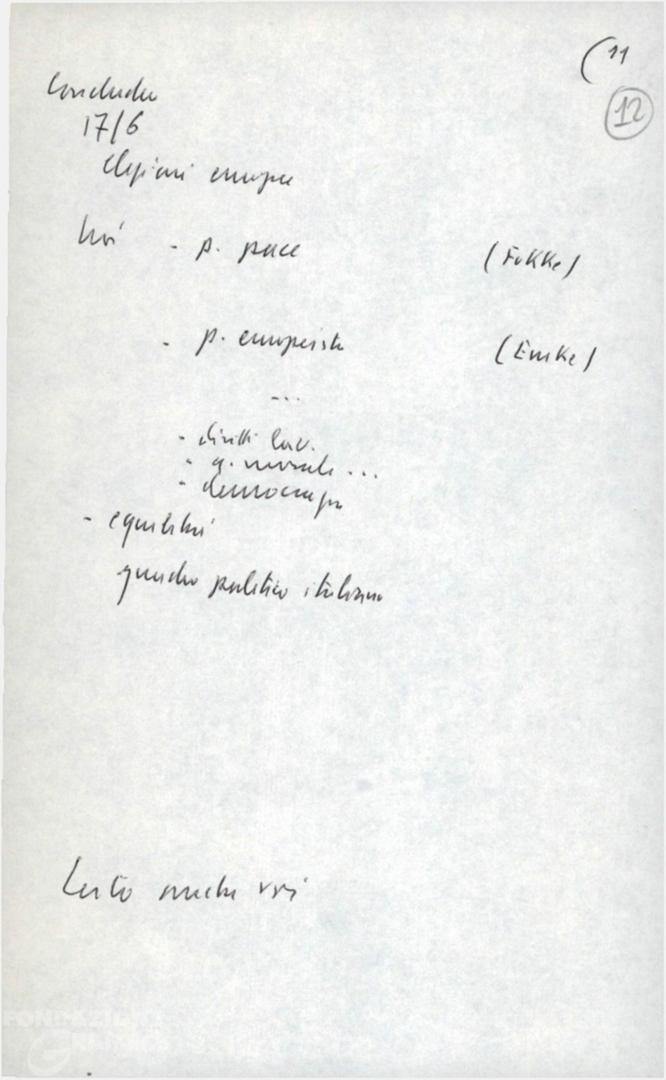 (11
12
Concludo
17/6
elezioni europee
Noi - p. pace (Fokke)
- p. europeista (Emke)
...
- diritti lav.
- q. morale ...
- democrazia
- equilibri
quadro politico italiano
Certo anche voi
FONDAZIONE